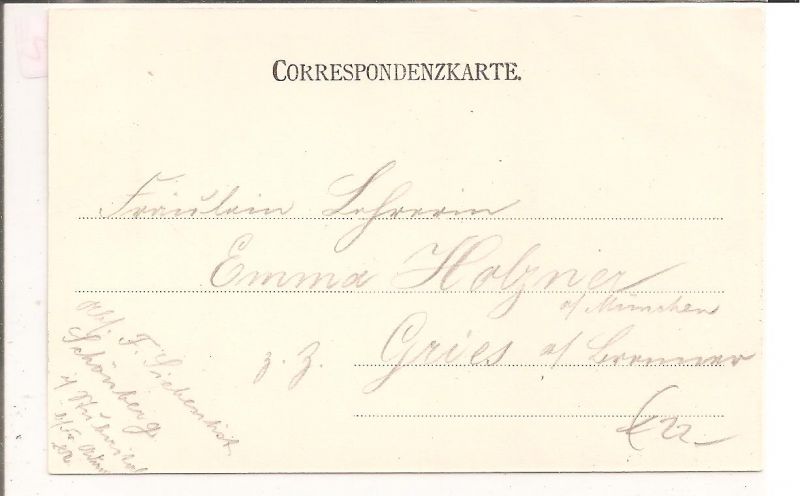 CORRESPONDENZKARTE.
Fräulein Lehrerin
Emma Holzner
a/München
z. Z. Gries a/Brenner
Abs. F. Siebenlist
Schönberg
i/Stubaital